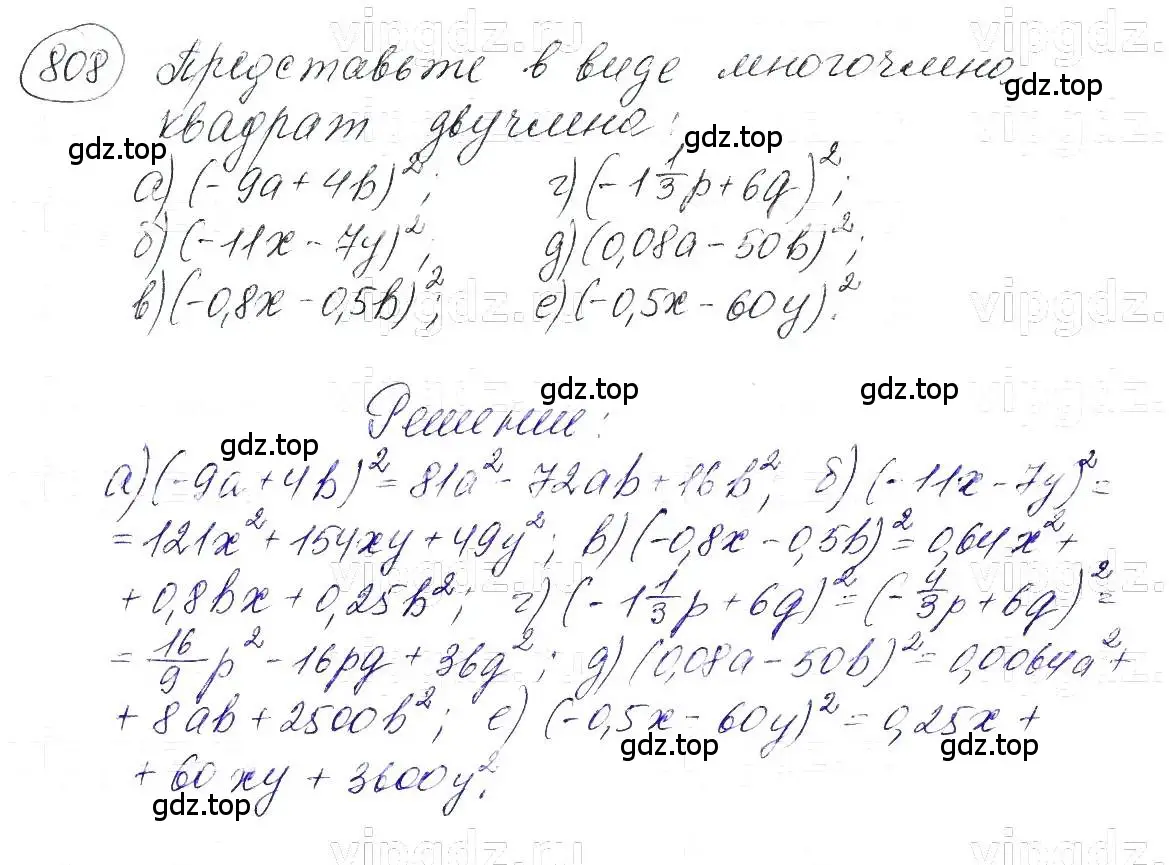 808 Представьте в виде многочлена
квадрат двучлена:
а) (-9a + 4b)²; г) (-1 1/3 p + 6q)²;
б) (-11x - 7y)²; д) (0,08a - 50b)²;
в) (-0,8x - 0,5b)²; е) (-0,5x - 60y)².
Решение:
а) (-9a + 4b)² = 81a² - 72ab + 16b²; б) (-11x - 7y)² =
= 121x² + 154xy + 49y²; в) (-0,8x - 0,5b)² = 0,64x² +
+ 0,8bx + 0,25b²; г) (-1 1/3 p + 6q)² = (-4/3 p + 6q)² =
= 16/9 p² - 16pq + 36q²; д) (0,08a - 50b)² = 0,0064a² +
+ 8ab + 2500b²; е) (-0,5x - 60y)² = 0,25x +
+ 60xy + 3600y².
vipgdz.ru
gdz.top